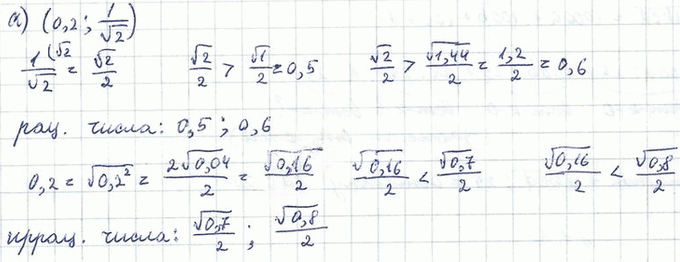 а) (0,2 ; 1/√2)
1(√2/√2 = √2/2   √2/2 > √1/2 = 0,5   √2/2 > √1,44/2 = 1,2/2 = 0,6
рац. числа: 0,5 ; 0,6
0,2 = √0,2² = 2√0,04/2 = √0,16/2   √0,16/2 < √0,7/2   √0,16/2 < √0,8/2
иррац. числа: √0,7/2 ; √0,8/2